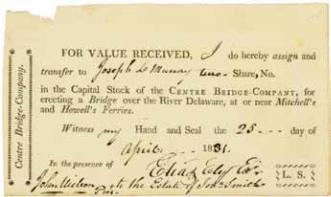 Centre Bridge-Company.
FOR VALUE RECEIVED, I do hereby assign and
transfer to Joseph D Murray two Share, No.
in the Capital Stock of the CENTRE BRIDGE-COMPANY, for
erecting a Bridge over the River Delaware, at or near Mitchell's
and Howell's Ferries.
Witness my Hand and Seal the 25 day of
April 1831.
In the presence of Elias Ely Exr L. S.
John to the Estate of Jos. Smith